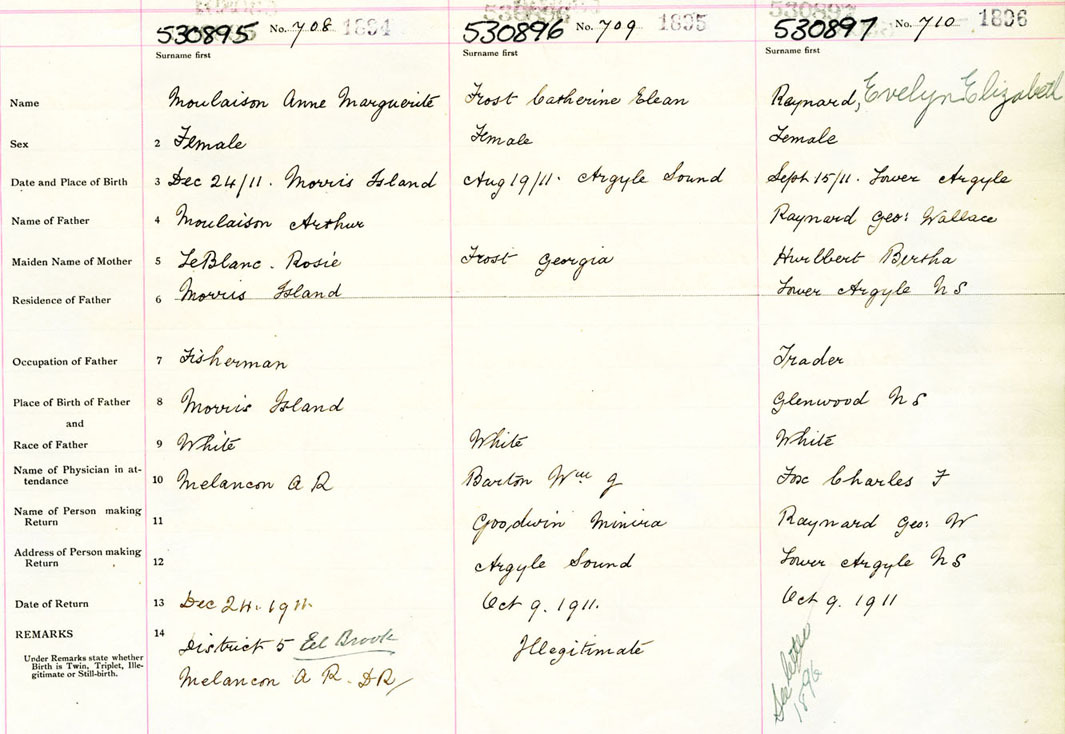 530895 No. 708 1894 530896 No. 709 1895 530897 No. 710 1896
Surname first Surname first Surname first
Name Moulaison Anne Marguerite Frost Catherine Elean Raynard, Evelyn Elizabeth
Sex 2 Female Female Female
Date and Place of Birth 3 Dec 24/11. Morris Island Aug 19/11. Argyle Sound Sept 15/11. Lower Argyle
Name of Father 4 Moulaison Arthur Raynard Geo: Wallace
Maiden Name of Mother 5 LeBlanc. Rosie Frost Georgia Hurlbert Bertha
Residence of Father 6 Morris Island Lower Argyle N S
Occupation of Father 7 Fisherman Trader
Place of Birth of Father 8 Morris Island Glenwood N S
and
Race of Father 9 White White White
Name of Physician in at-
tendance 10 Melancon A R Barton Wm G Fox Charles F
Name of Person making
Return 11 Goodwin Minira Raynard Geo: W
Address of Person making
Return 12 Argyle Sound Lower Argyle N S
Date of Return 13 Dec 24. 1911. Oct 9. 1911. Oct 9. 1911
REMARKS 14 District 5 Eel Brook Illegitimate
Under Remarks state whether
Birth is Twin, Triplet, Ille-
gitimate or Still-birth.
Melancon A R. D R
See letter
1896